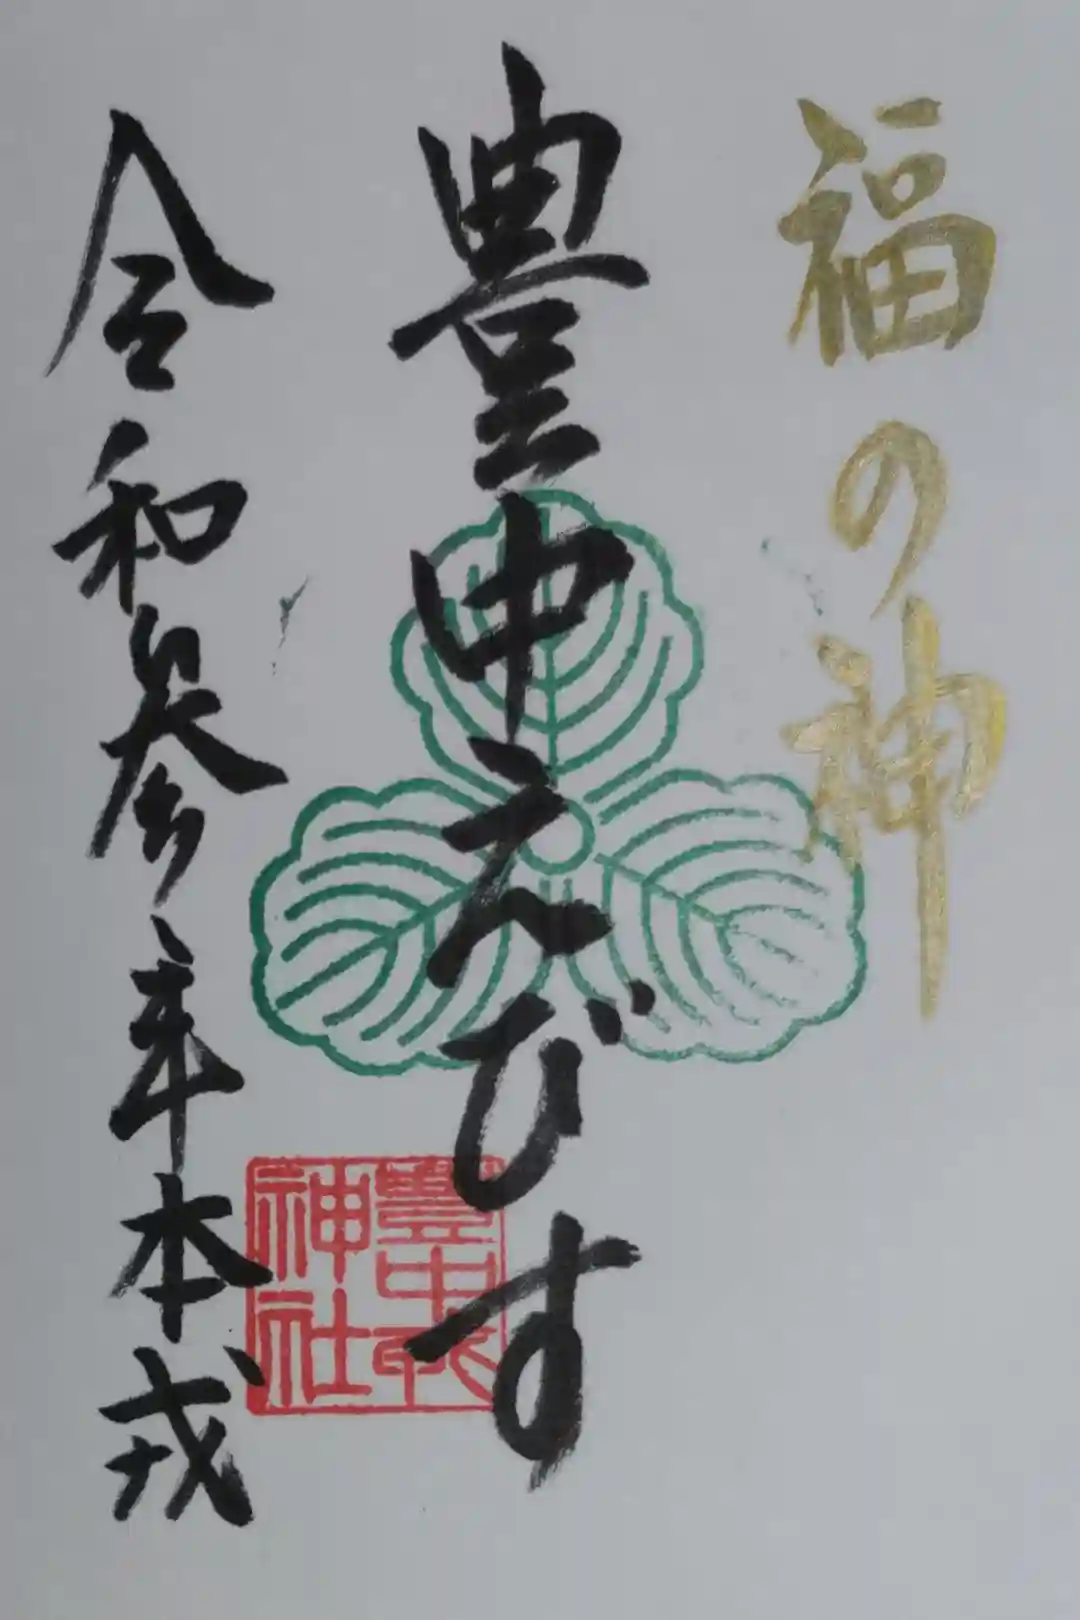 福の神
豊中えびす
令和参年本戎
豊中戎
神社